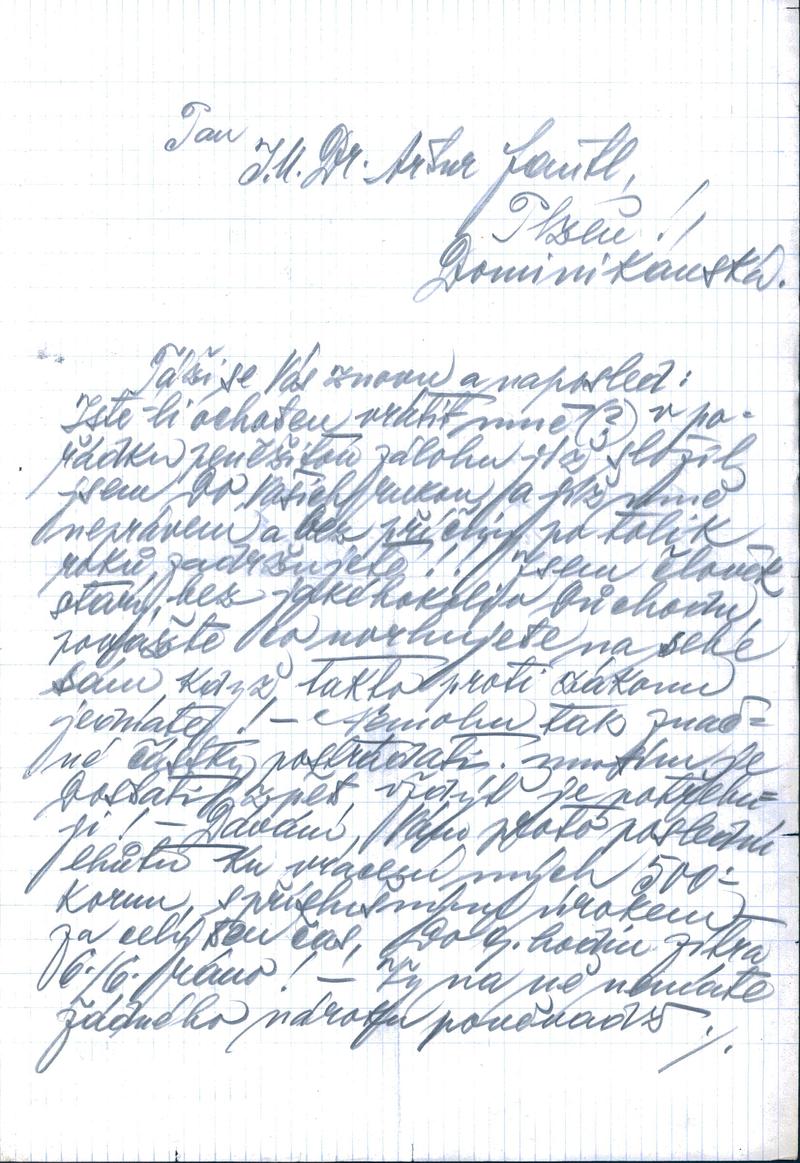 Pan
J.U. Dr. Artur Fantl,
Plzeň !!
Dominikánská.
Táži se Vás znovu a naposled:
Jste-li ochoten vrátit mně (?) v po-
řádku peněžitou zálohu jíž složil
jsem do Vašich rukou, a jíž mně
neprávem a bez příčiny po tolik
roků zadržujete!!! Jsem člověk
starý, bez jakéhokoliv důchodu
považte co uvrhujete na sebe
sám když takto proti zákonu
jednáte! – Nemohu tak znač=
né částky postrádati. musím je
dostati zpět vždyť je potřebu=
ji! – Dávám Vám proto poslední
lhůtu ku vrácení mých 500:-
korun, s příslušným úrokem
za celý ten čas, do 9. hodin zítra
6./6. ráno! – Vy na ně nemáte
žádného nároku poněvadž ./.